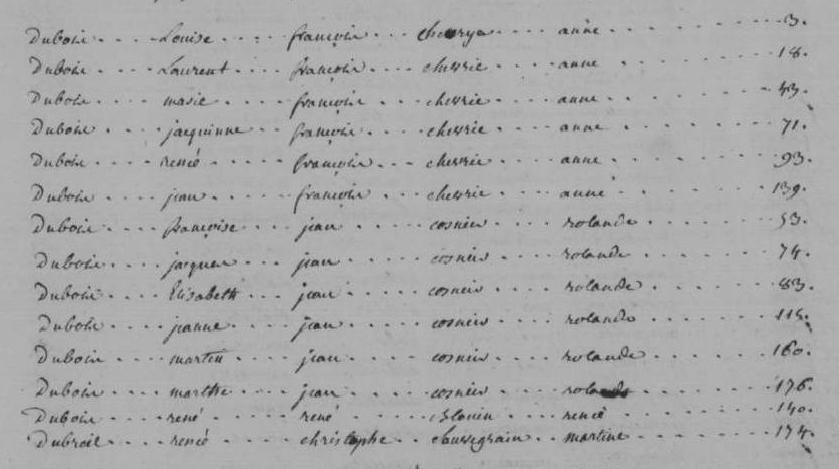 Dubois .... Louise ..... françois ... chevrye ..... anne ........ 3.
Dubois .... Laurent .... françois .... chevrie ..... anne ........ 18.
Dubois .... marie ..... françois .... chevrie ..... anne ........ 43.
Dubois .... jacquinne .... françois .... chevrie ..... anne ........ 71.
Dubois .... renée ...... françois ... chevrie ..... anne ........ 93.
Dubois .... jean ....... françois ... chevrie ..... anne ........ 139.
Dubois .... françoise ... jean ...... cosnier ..... rolande ...... 53.
Dubois .... jacques .... jean ...... cosnier ..... rolande ...... 74.
Dubois .... Elisabeth ... jean ...... cosnier ..... rolande ...... 83.
Dubois .... jeanne .... jean ...... cosnier ..... rolande ...... 115.
Dubois .... martin .... jean ...... cosnier ..... rolande ...... 160.
Dubois .... marthe .... jean ...... cosnier ..... rolande ...... 176.
Dubois .... rené ....... rené ...... renée ....... 140.
Dubreil .... renée ...... christophe .. chaussegrain .. martine ...... 174.